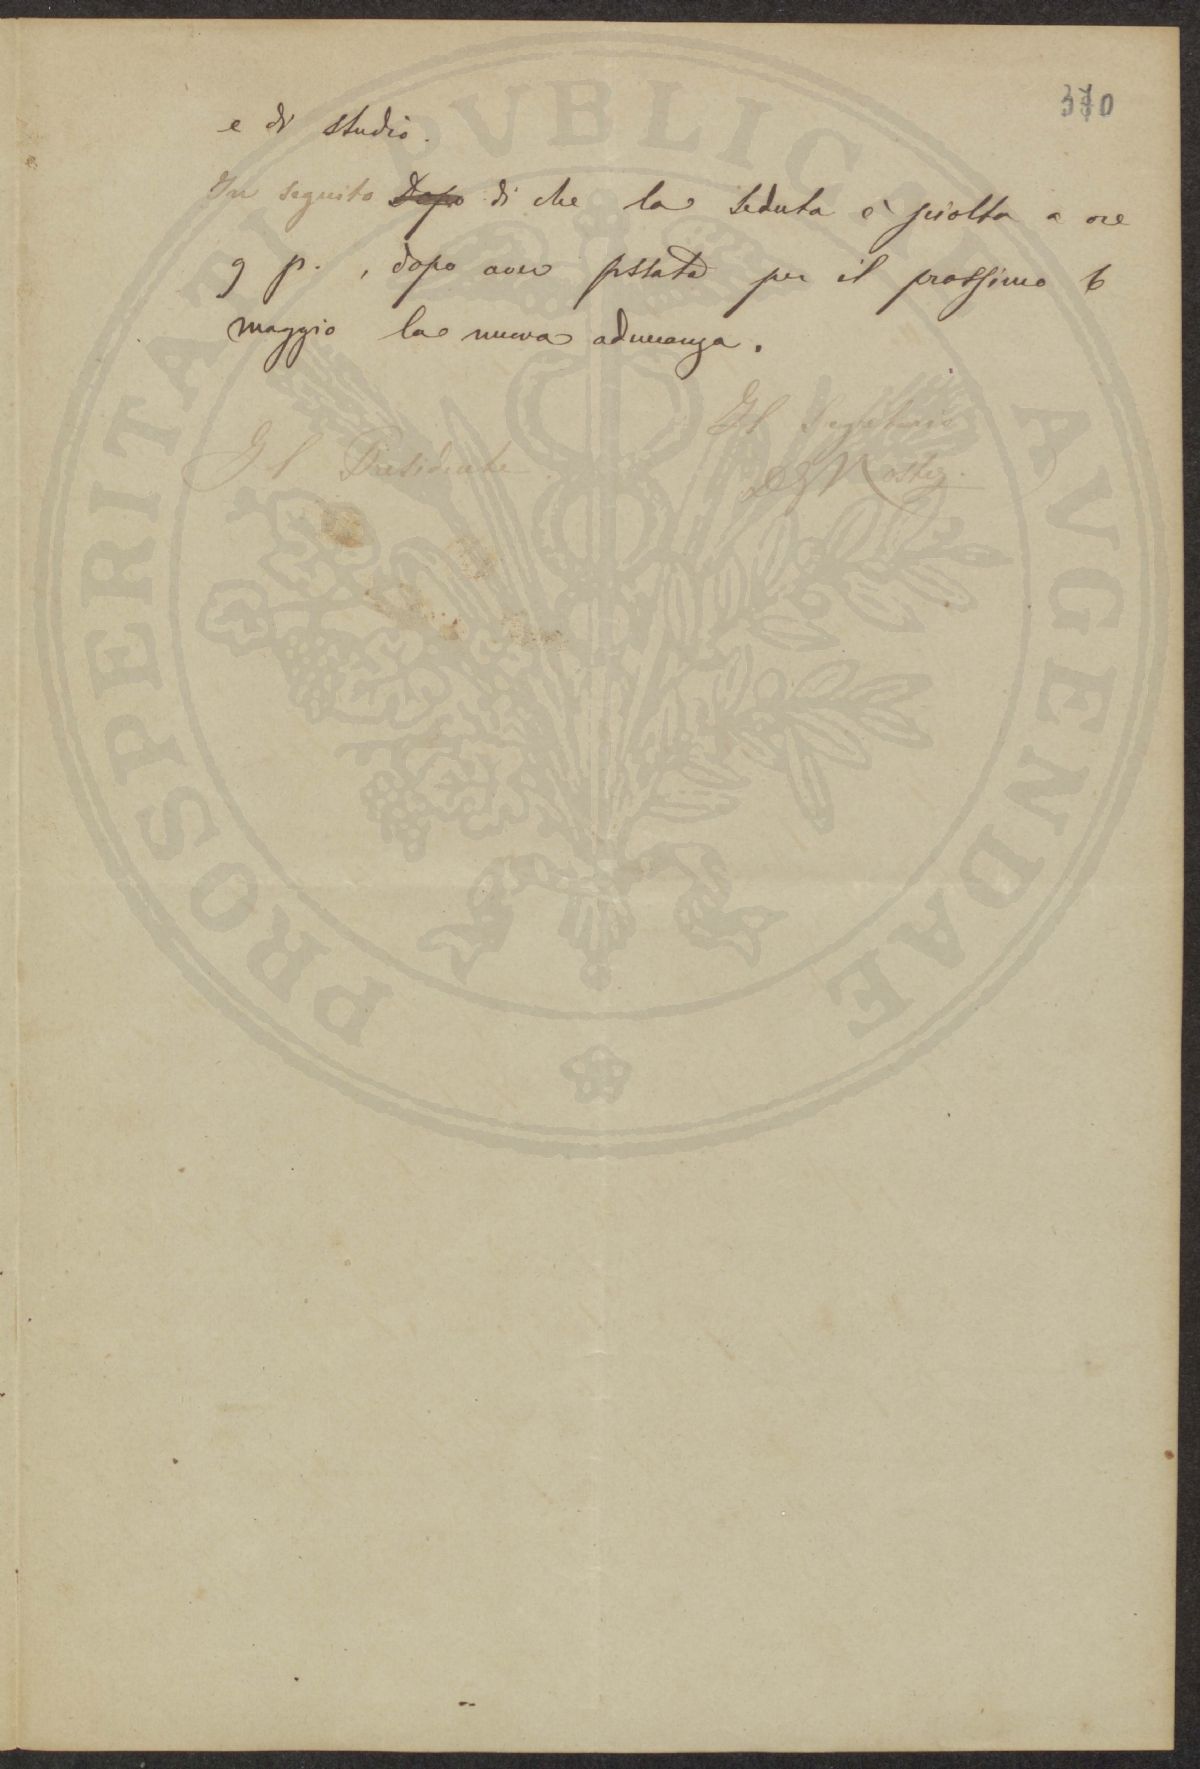 370
e di studio.
In seguito Dopo di che la seduta è sciolta a ore
9 p. , dopo aver fissata per il prossimo 6
maggio la nuova adunanza.
Il Segretario
Il Presidente
PROSPERITATI PVBLICAE AVGENDAE